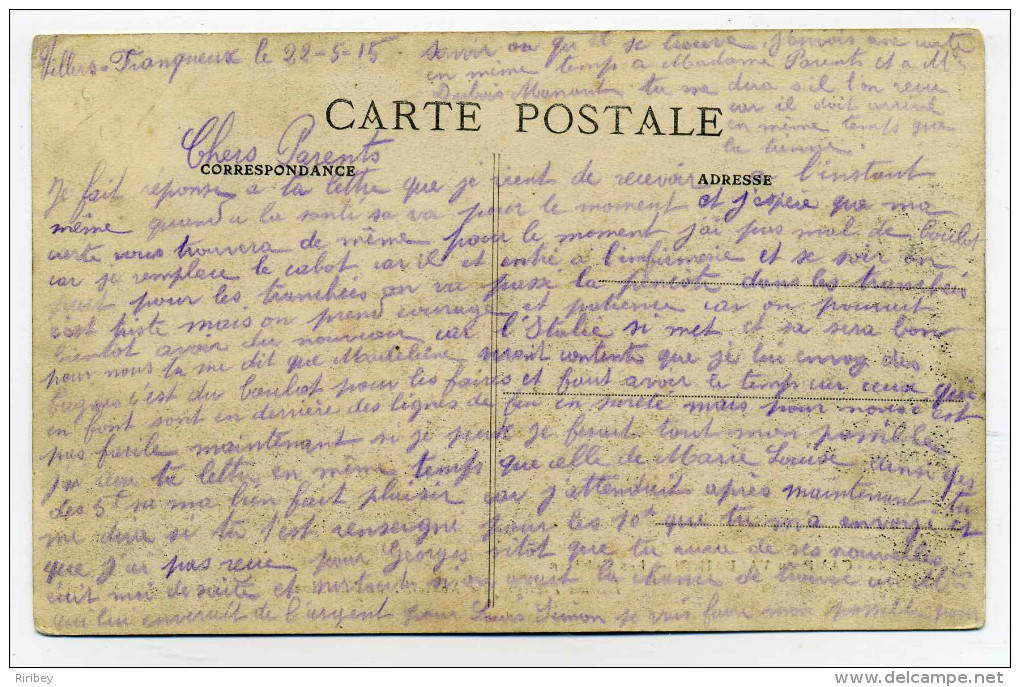 Villers-Franqueux le 22-5-15
savoir ou qu'il se trouve, j'envois une carte
en même temps a Madame Parents et a Me
Dubois Manant tu me dira s'il l'on recu
car il doit arrivé
en même temps que
la tienne.
CARTE POSTALE
Chers Parents
CORRESPONDANCE
ADRESSE
Je fait réponse a ta lettre que je vient de recevoir a l'instant
même quand a la santé sa va pour le moment et j'espère que ma
carte vous trouvera de même pour le moment j'ai pas mal de boulot
car je remplace le cabot car il et entré a l'infirmerie et se soir on
part pour les tranchées on va passé la penecôte dans les tranchées
c'est triste mais on prend courage et patience car on pourrait
bientot avoir du nouveau car l'Italie si met et sa sera bon
pour nous tu me dit que Madeleine serait contente que je lui envoy des
bagues c'est du boulot pour les faires et faut avoir le temps car ceux qui
en font sont en derrière des lignes de feu en sureté mais pour nous c'est
pas facile maintenant si je peux je ferait tout mon possible
j'ai recu ta lettre en même temps que celle de Marie Louise ainsi que
les 5f sa ma bien fait plaisir car j'attendait après maintenant tu
me dira si tu t'est renseigné pour les 10f que tu m'a envoyé et
que j'ai pas recu pour Georges sitôt que tu aura de ses nouvelles
écrit moi de suite et surtout si on avait la chance de trouvé
on lui enverait de l'argent pour Louis Simon je vais faire mon possible pour
Ribey
www.delcampe.net